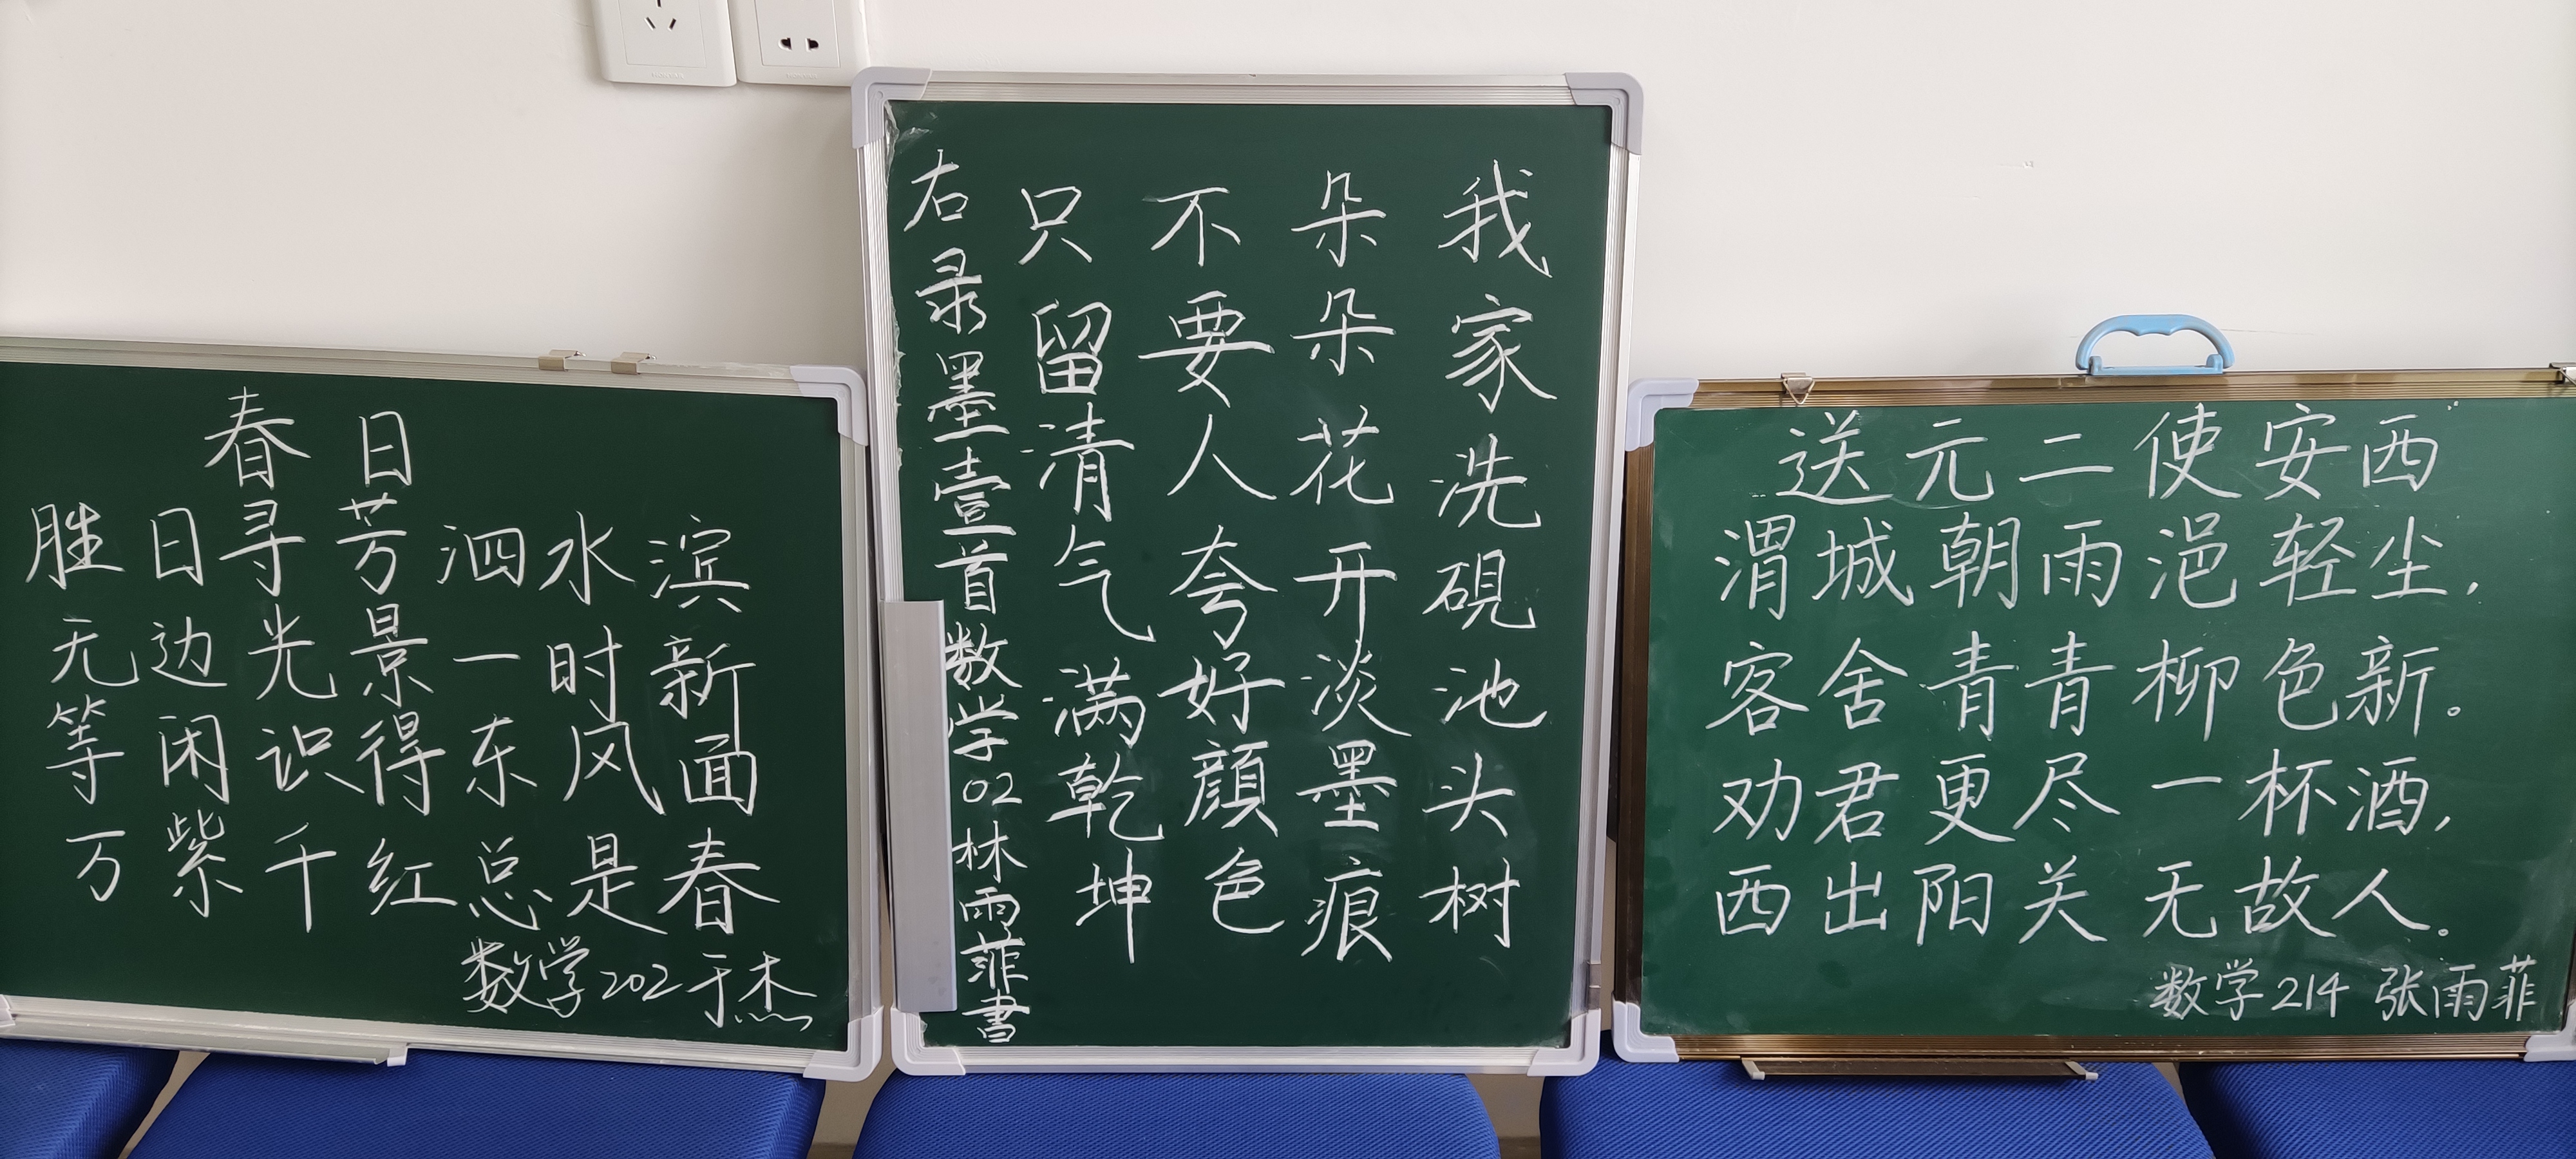 春日
胜日寻芳泗水滨
无边光景一时新
等闲识得东风面
万紫千红总是春
数学202于杰
我家洗砚池头树
朵朵花开淡墨痕
不要人夸好顔色
只留清气满乾坤
右录墨壹首数学02林雨菲書
送元二使安西
渭城朝雨浥轻尘,
客舍青青柳色新。
劝君更尽一杯酒,
西出阳关无故人。
数学214 张雨菲